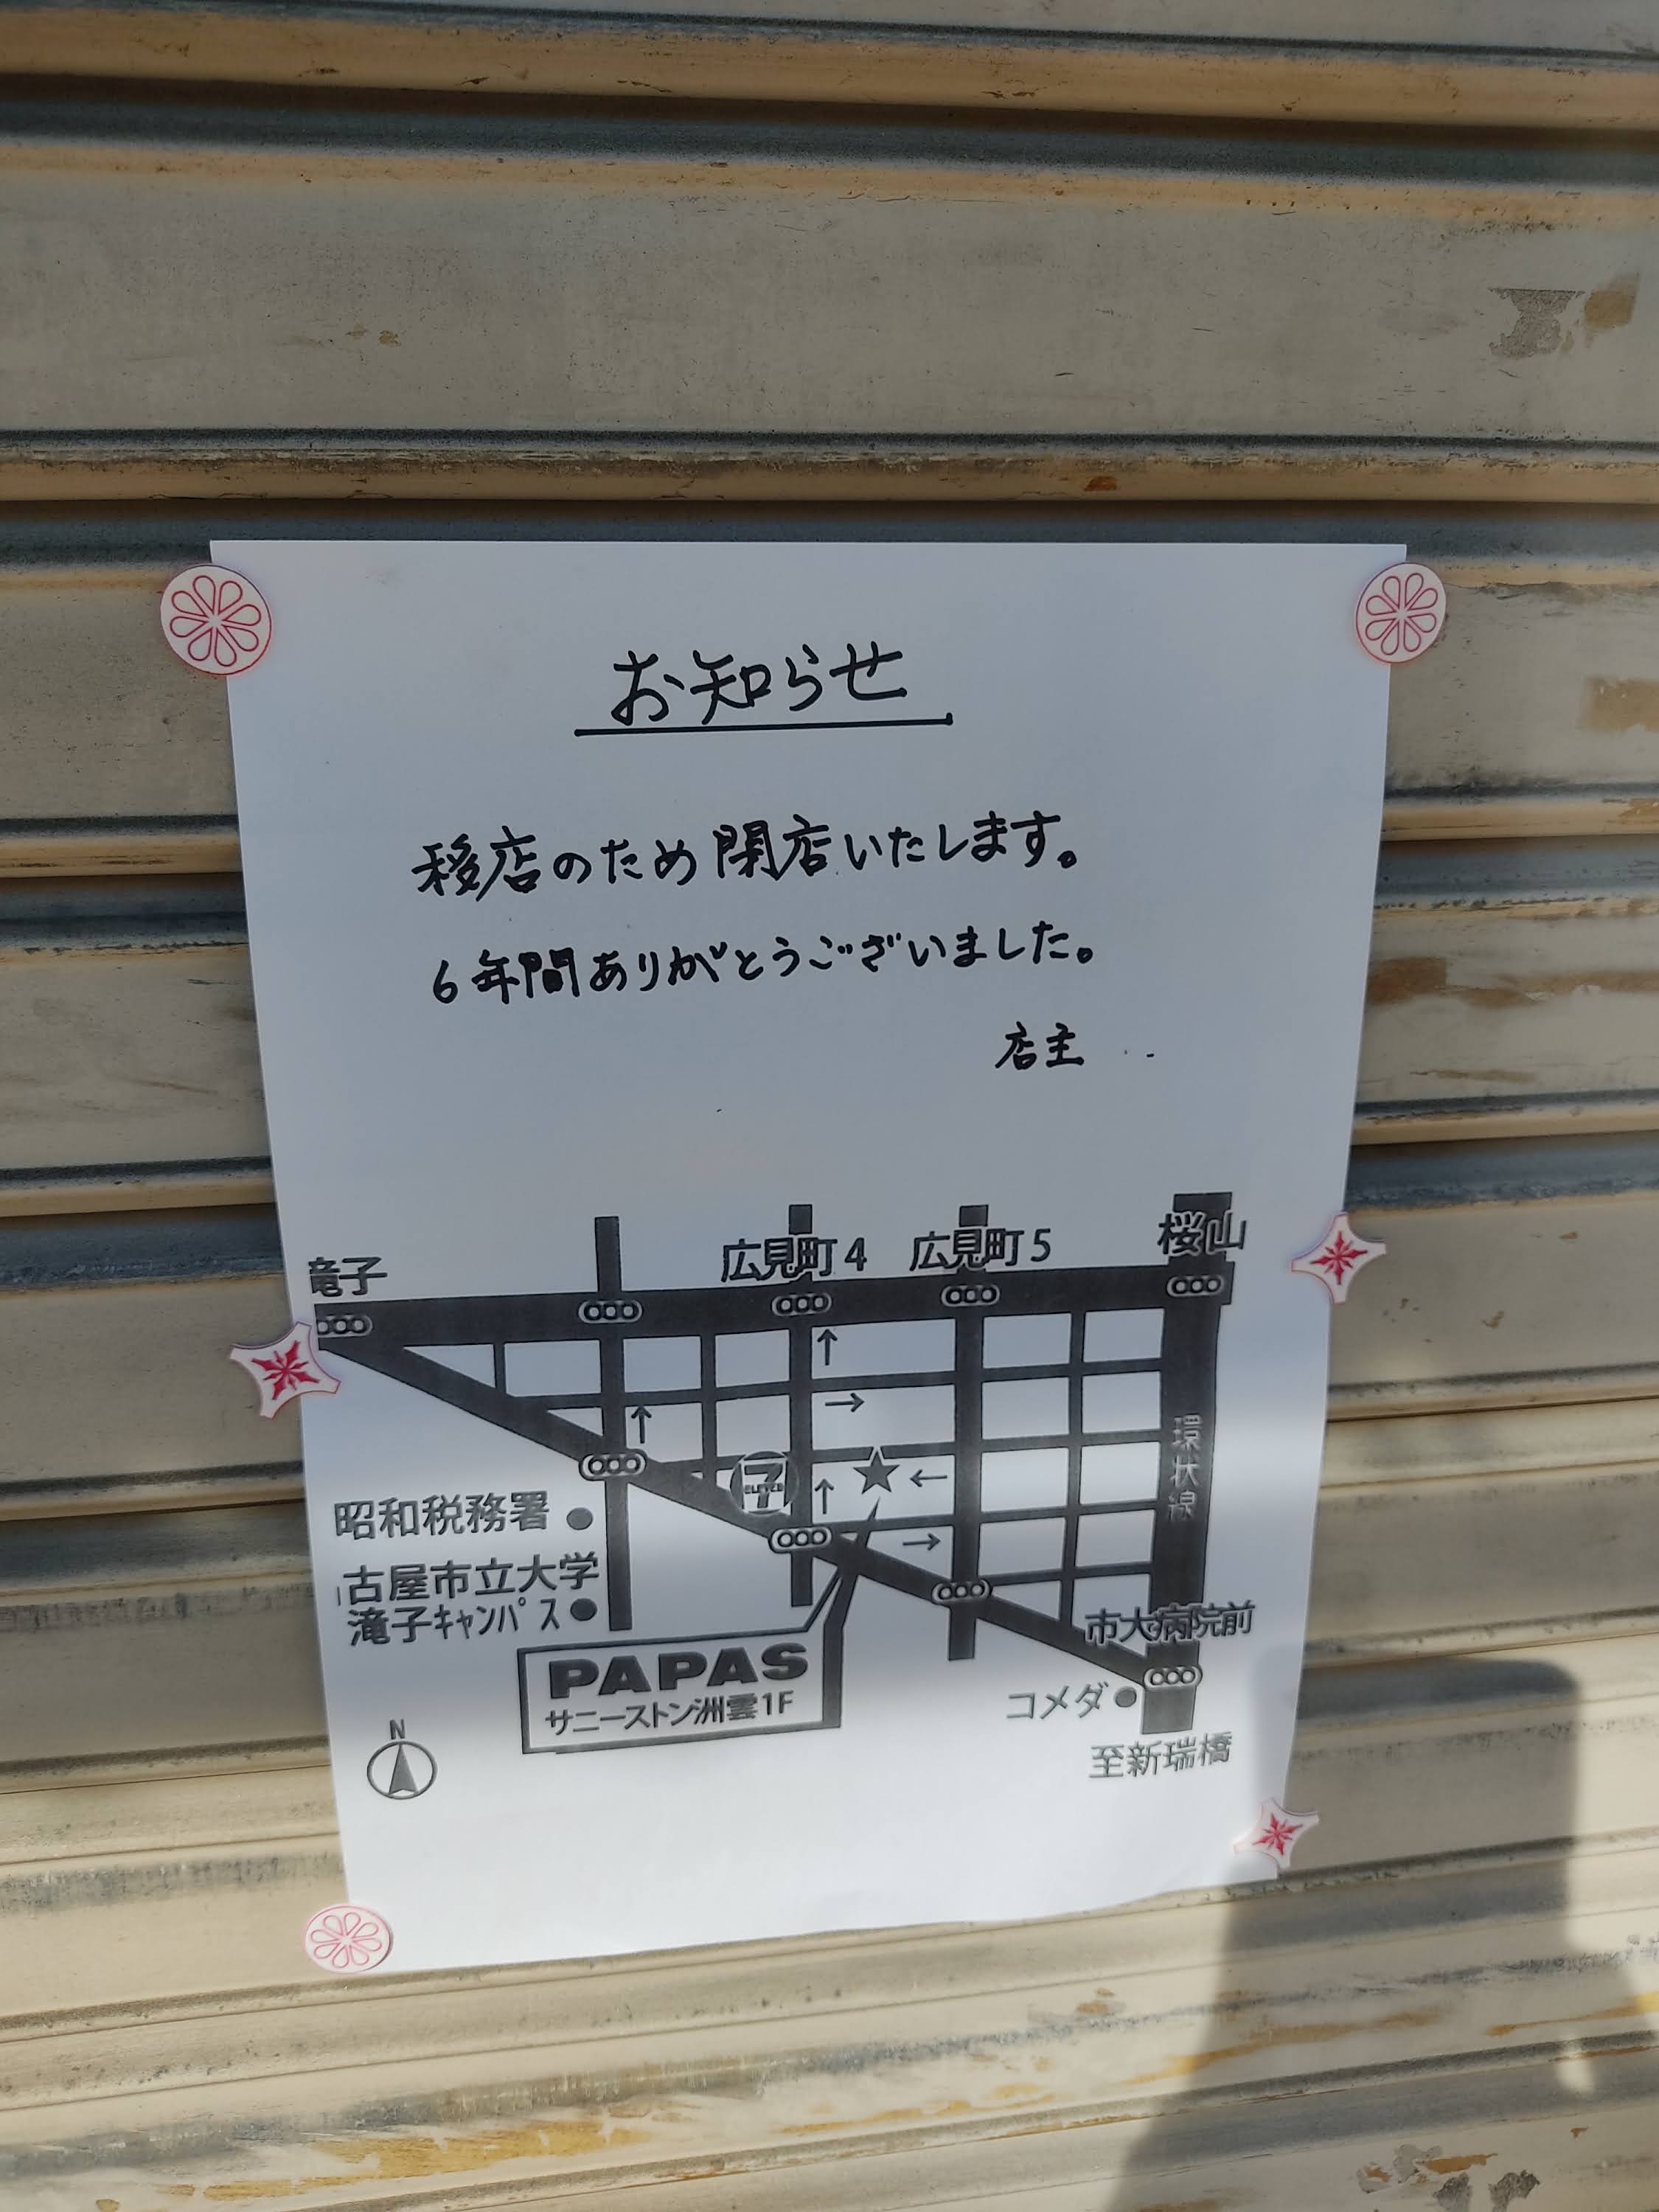 お知らせ
移店のため閉店いたします。
6年間ありがとうございました。
店主
滝子
広見町4
広見町5
桜山
環状線
7
昭和税務署
古屋市立大学
滝子キャンパス
市大病院前
PAPAS
サニーストン洲雲1F
コメダ
至新瑞橋
N